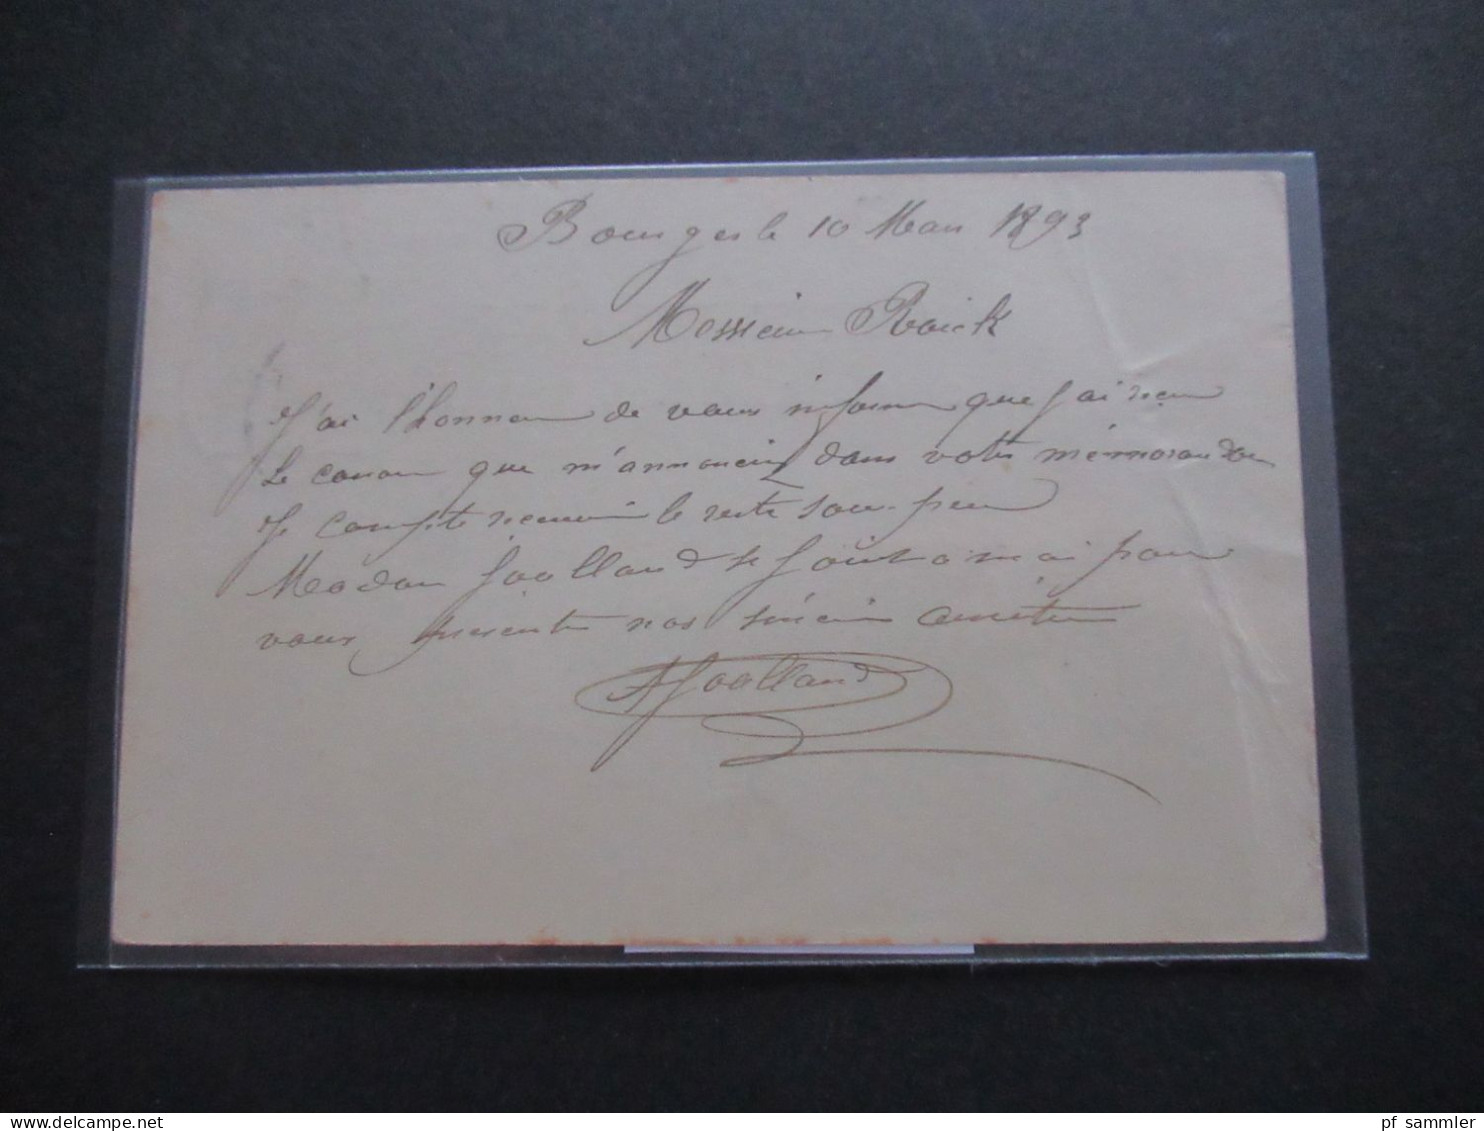 Bourges le 10 Mars 1893
Monsieur
J'ai l'honneur de vous informer que J'ai reçu
Le que m'annonciez dans votre mémorandum
Je compte recevoir le reste sous peu
Madame Joolland se Joint a moi pour
vous présenter nos sincères
A Joolland
www.delcampe.net
pf_sammler